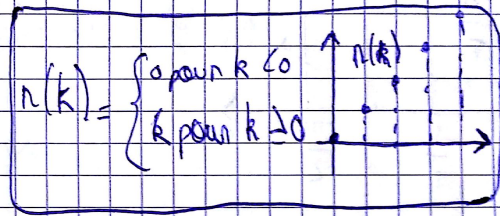 r(k) = { 0 pour k < 0
k pour k ≥ 0
r(k)